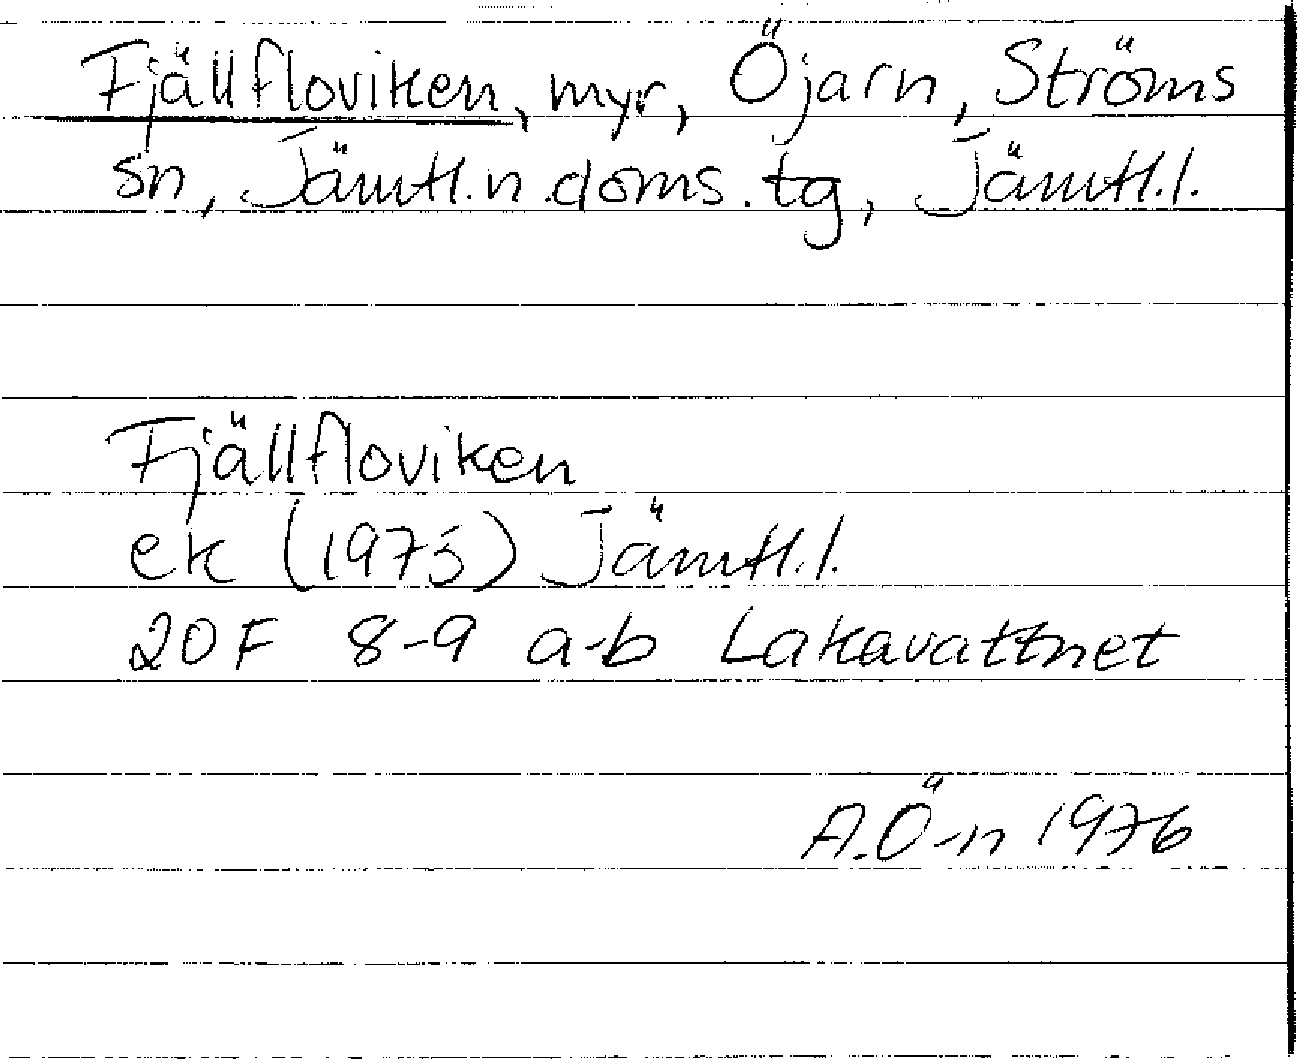 Fjällfloviken, myr, Öjarn, Ströms
sn, Jämtl.n.doms.tg, Jämtl.l.
Fjällfloviken
ek (1975) Jämtl.l.
20F 8-9 a-b Lakavattnet
A.Ö-n 1976